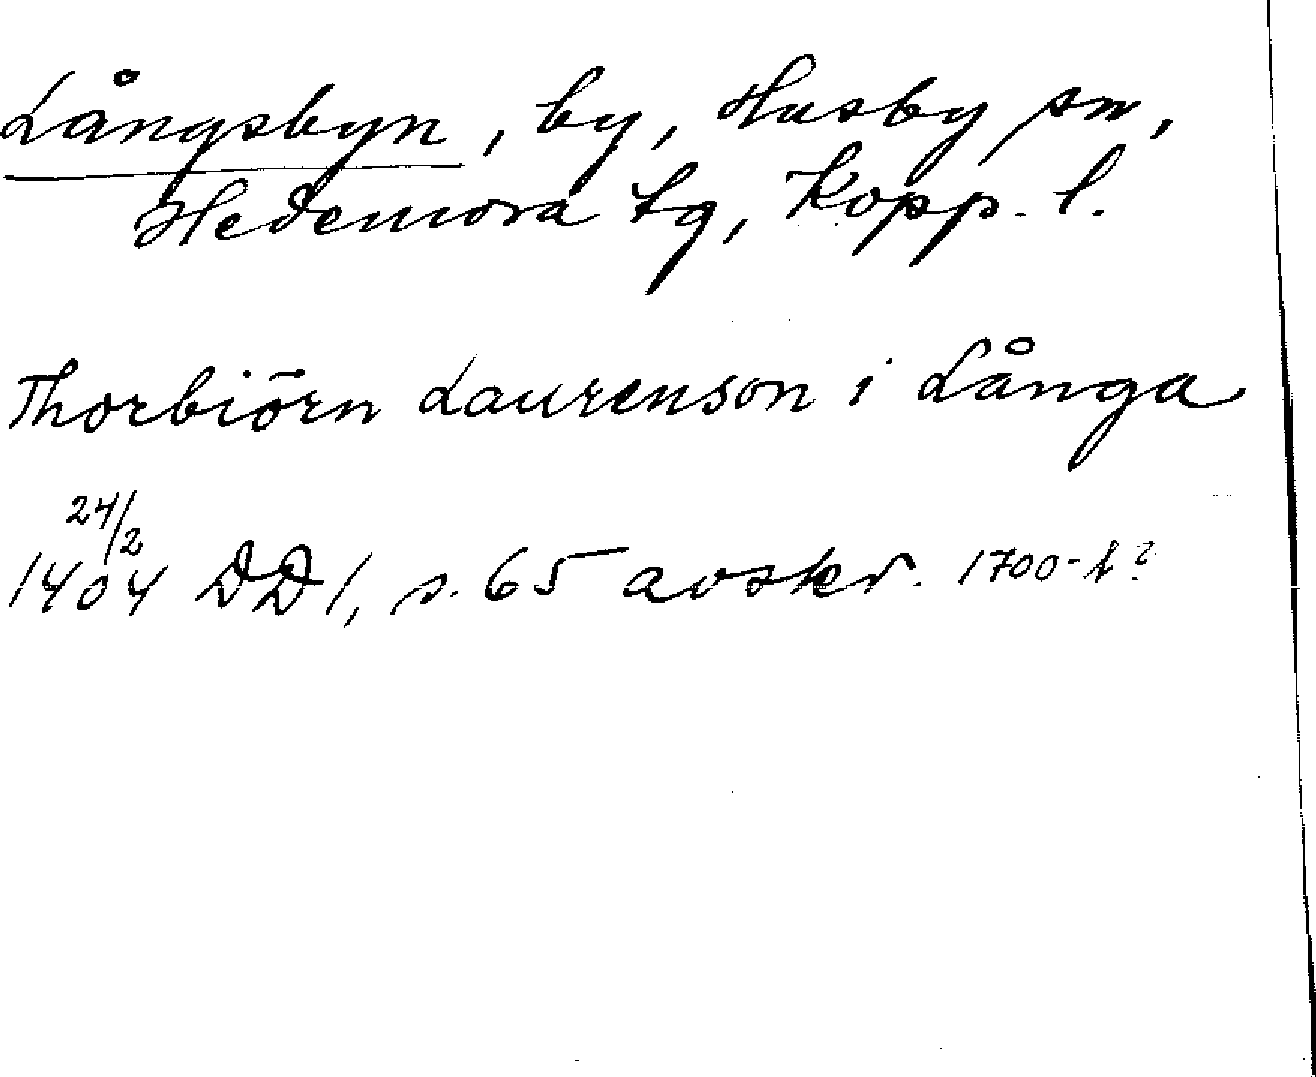 Långsbyn, by, Husby sn,
Hedemora tg, Kopp. l.
Thorbiörn Laurenson i Långa
24/2
1404 DD 1, s. 65 avskr. 1700-t?